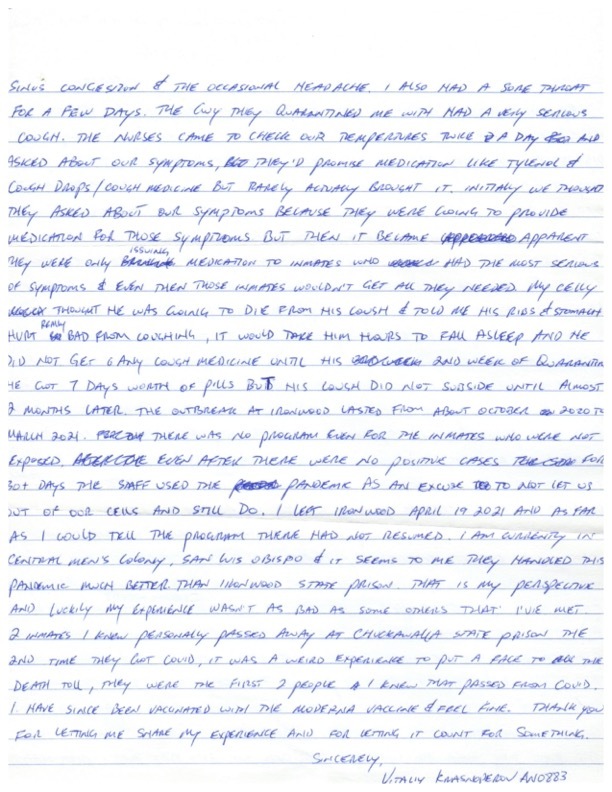 SINUS CONGESTION & THE OCCASIONAL HEADACHE. I ALSO HAD A SORE THROAT
FOR A FEW DAYS. THE GUY THEY QUARANTINED ME WITH HAD A VERY SERIOUS
COUGH. THE NURSES CAME TO CHECK OUR TEMPERTURES TWICE A DAY AND
ASKED ABOUT OUR SYMPTOMS, THEY'D PROMISE MEDICATION LIKE TYLENOL &
COUGH DROPS/COUGH MEDICINE BUT RARELY ACTUALLY BROUGHT IT. INITIALLY WE THOUGHT
THEY ASKED ABOUT OUR SYMPTOMS BECAUSE THEY WERE GOING TO PROVIDE
MEDICATION FOR THOSE SYMPTOMS BUT THEN IT BECAME APPARENT
THEY WERE ONLY ISSUING MEDICATION TO INMATES WHO HAD THE MOST SERIOUS
OF SYMPTOMS & EVEN THEN THOSE INMATES WOULDN'T GET ALL THEY NEEDED. MY CELLY
THOUGHT HE WAS GOING TO DIE FROM HIS COUGH & TOLD ME HIS RIBS & STOMACH
HURT REALLY BAD FROM COUGHING, IT WOULD TAKE HIM HOURS TO FALL ASLEEP AND HE
DID NOT GET ANY COUGH MEDICINE UNTIL HIS 2ND WEEK OF QUARANTIN
HE GOT 7 DAYS WORTH OF PILLS BUT HIS COUGH DID NOT SUBSIDE UNTIL ALMOST
2 MONTHS LATER. THE OUTBREAK AT IRONWOOD LASTED FROM ABOUT OCTOBER 2020 TO
MARCH 2021. THERE WAS NO PROGRAM EVEN FOR THE INMATES WHO WERE NOT
EXPOSED. EVEN AFTER THERE WERE NO POSITIVE CASES FOR
30+ DAYS THE STAFF USED THE PANDEMIC AS AN EXCUSE TO NOT LET US
OUT OF OUR CELLS AND STILL DO. I LEFT IRONWOOD APRIL 19 2021 AND AS FAR
AS I COULD TELL THE PROGRAM THERE HAD NOT RESUMED. I AM CURRENTLY IN
CENTRAL MEN'S COLONY, SAN LUIS OBISPO & IT SEEMS TO ME THEY HANDLED THIS
PANDEMIC MUCH BETTER THAN IRONWOOD STATE PRISON. THAT IS MY PERSPECTIVE
AND LUCKILY MY EXPERIENCE WASN'T AS BAD AS SOME OTHERS THAT I'VE MET.
2 INMATES I KNEW PERSONALLY PASSED AWAY AT CHUCKAWALLA STATE PRISON THE
2ND TIME THEY GOT COVID, IT WAS A WEIRD EXPERIENCE TO PUT A FACE TO THE
DEATH TOLL, THEY WERE THE FIRST 2 PEOPLE I KNEW THAT PASSED FROM COVID.
I HAVE SINCE BEEN VACCINATED WITH THE MODERNA VACCINE & FEEL FINE. THANK YOU
FOR LETTING ME SHARE MY EXPERIENCE AND FOR LETTING IT COUNT FOR SOMETHING.
SINCERELY,
VITALIY KRASNOPEROV AN0883